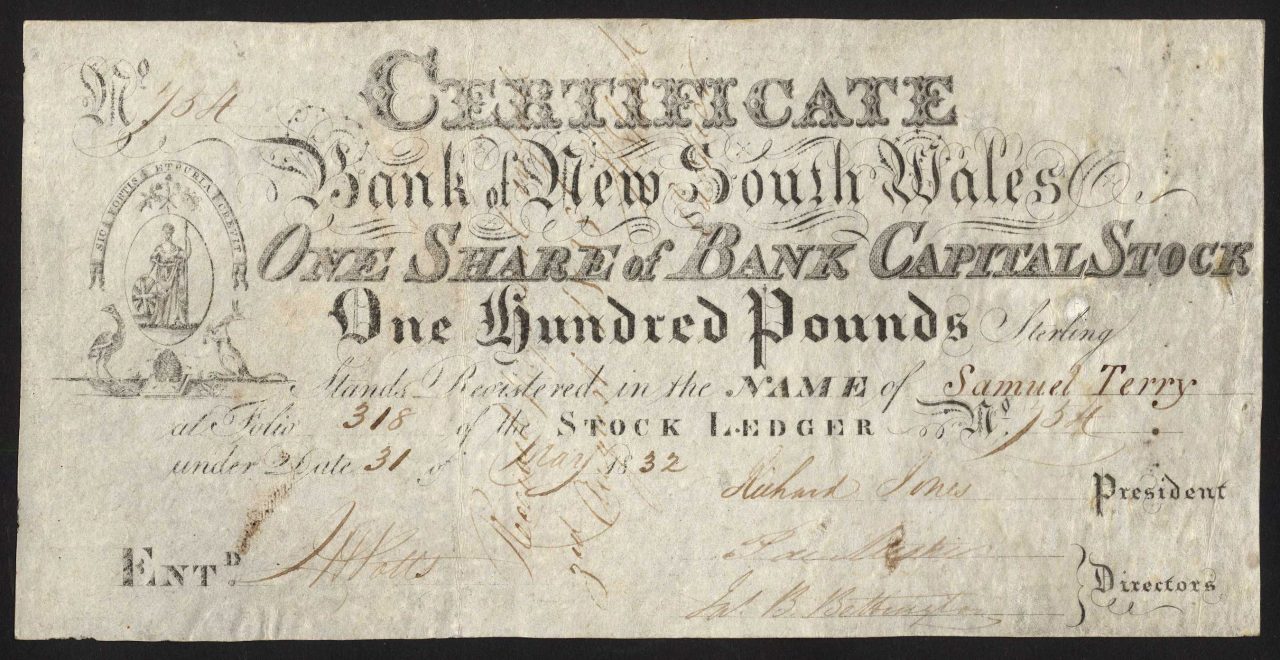 No. 754
CERTIFICATE
Bank of New South Wales
SIC FORTIS ETRURIA CREVIT
ONE SHARE of BANK CAPITAL STOCK
One Hundred Pounds Sterling
Stands Registered in the NAME of Samuel Terry
at Folio 318 of the STOCK LEDGER No. 754
under Date 31 of May 1832
Richard Jones President
ENTD.
Jas. B. Bettington Directors